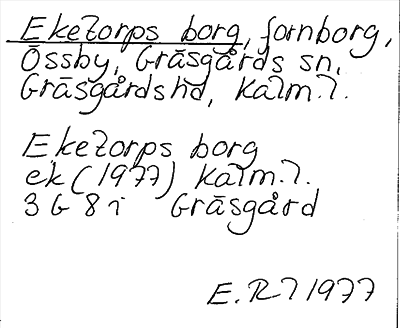 Eketorps borg, fornborg,
Össby, Gräsgårds sn,
Gräsgårds hd, Kalm. l.
Eketorps borg
ek (1977) Kalm. l.
3 G 8 i Gräsgård
E. R 1977